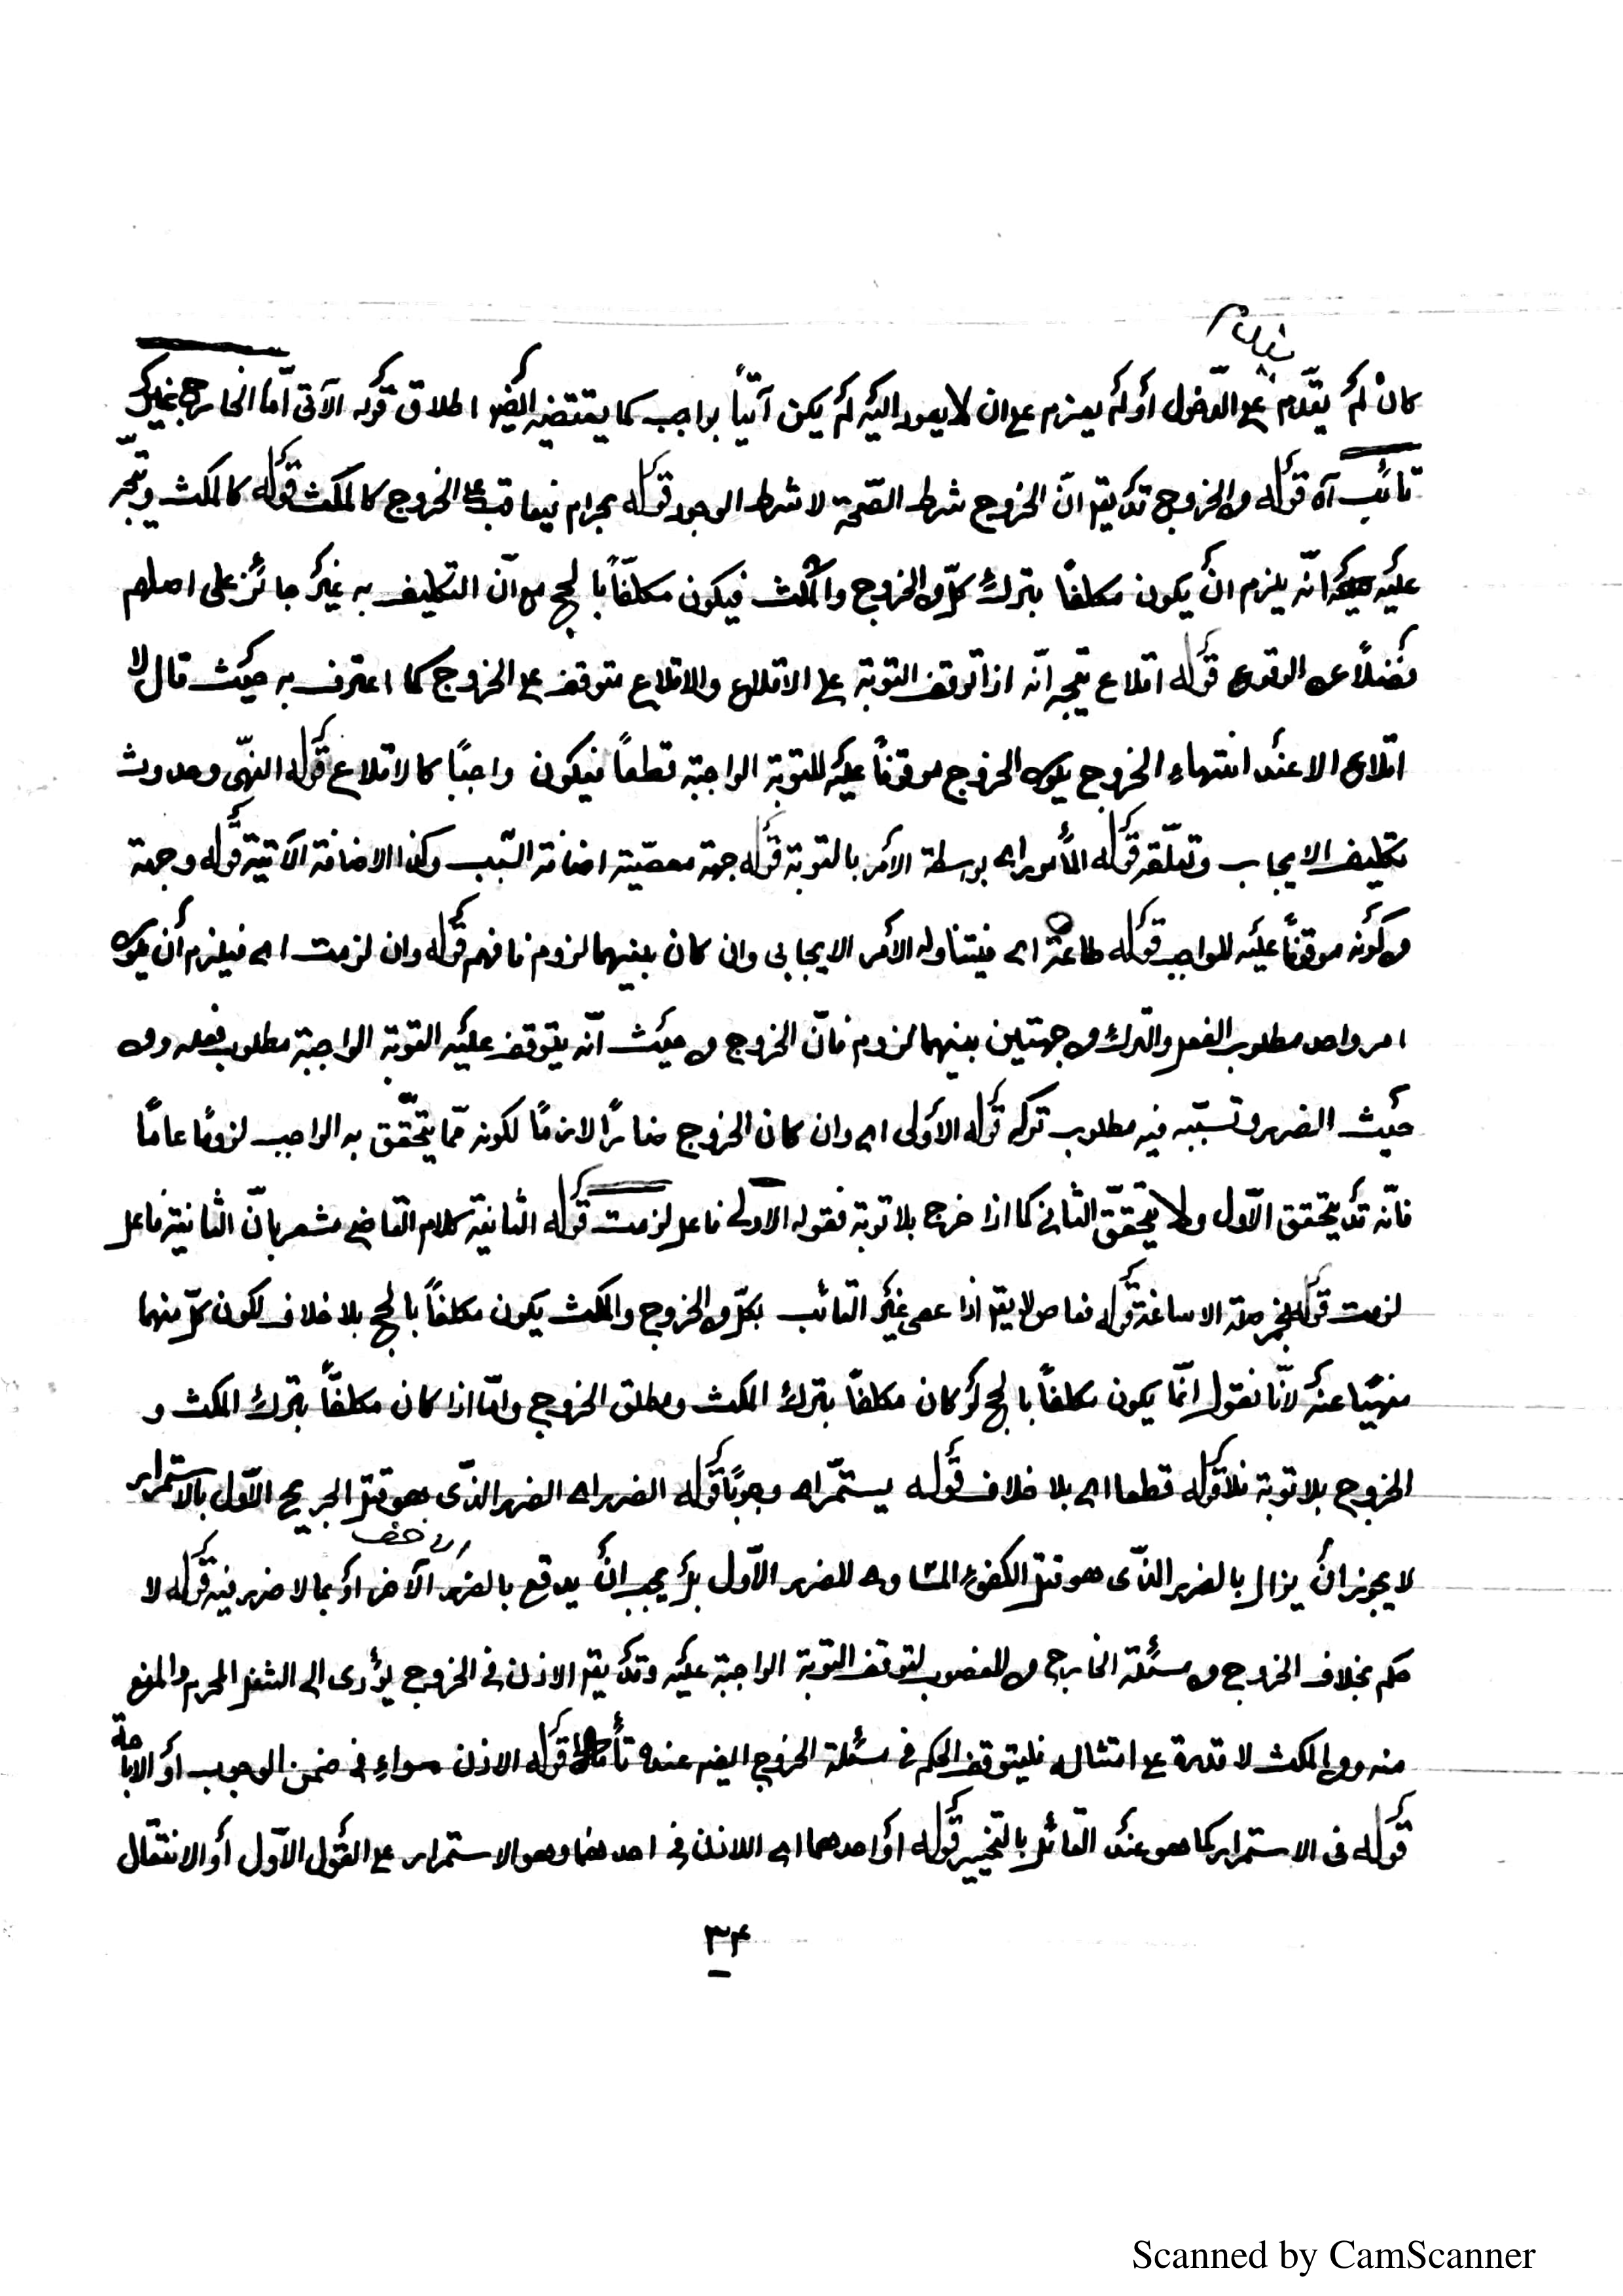 كانْ لم يقدم على الدّخول أو لم يعزم على ان لا يعود اليه لم يكن آتياً بواجب كما يقتضيه ايضا اطلاق قوله الآتى أمّا الخارج غير
تائب آه قوله والخروج قد يق انّ الخروج شرط الصّحة لا شرط الوجود قوله بحرام فيعاقب على الخروج كالمكث قوله كالمكث ويتجه
عليه انّه يلزم انْ يكون مكلفا بترك كلّ من الخروج والمكث فيكون مكلفاً بالمح مع انّ التكليف به غير جائز على اصلهم
فضلاً عن الوقوع قوله اقلاع يتجه انّه اذا توقف التوبة على الاقلاع والاقلاع متوقف على الخروج كما اعترف به حيث قال لا
اقلاع الا عند انتهاء الخروج يكون الخروج موقوفاً عليه للتوبة الواجبة قطعاً فيكون واجبًا كالاقلاع قوله النهى وحدوث
تكليف الايجاب وتعلّقه قوله المأمور اى بوسطة الامر بالتوبة قوله جهة معصيّة اضافة السّبب وكذا الاضافة الآتية قوله وجهة
من كونه موقوفاً عليه للواجب قوله طاعة اى فيتناوله الأمر الايجابى وان كان بينهما لزوم فافهم قوله وان لزمت اى فيلزم أن يكون
امر واحد مطلوب الفعل والترك من جهتين بينهما لزوم فانّ الخروج من حيث انّه يتوقف عليه التوبة الواجبة مطلوب فعله ومن
حيث الضرر وتسبّبه فيه مطلوب تركه قوله الأولى اى وان كان الخروج ضارًا لازمًا لكونه ممّا يتحّقق به الواجب لزومًا عامًا
فانّه قد يتحقق الأوّل ولا يتحقّق الثانى كما اذا خرج بلا توبة فقوله الاولى فاعل لزمت قوله الثانية كلام القاضى مشعر بانّ الثانية فاعل
لزمت قوله الاساغة قوله فعاص لا يق اذا عصى غير التائب بكلّ من الخروج والمكث يكون مكلفاً بالمح بلا خلاف لكون كلّ منهما
منهيًا عنه لأنّا نقول انّما يكون مكلفاً بالمح لو كان مكلفاً بترك المكث ومطلق الخروج وامّا اذا كان مكلفاً بترك المكث و
الخروج بلا توبة فلا قوله قطعا اى بلا خلاف قوله يستمّر اى وجوبًا قوله الضرر اى الضرر الذّى هو قتل الجريح الأوّل بالاستمرار
لا يجوز انْ يزال بالضرر الذّى هو قتل الكفوء المساوى للضرر الأوّل بل يجب انْ يدفع بالضرر الآخر أو بما لا ضرر فيه قوله لا
حكم بخلاف الخروج من مسئلة الخارج من المغصوب لتوقف التوبة الواجبة عليه وقد يق الاذن فى الخروج يؤدى الى الشغل المحرم والمنع
منه ومن المكث لا قدرة على امتثاله فليتوقف الحكم فى مسئلة الخروج ايضا عنده تأمل قوله الاذن سواء فى ضمن الوجوب أو الاباحة
قوله فى الاستمرار كما هو عند القائل بالتخيير قوله أو احدهما اى الاذن فى احدهما وهو الاستمرار على القول الأوّل أو الانتقال
٣٤
Scanned by CamScanner